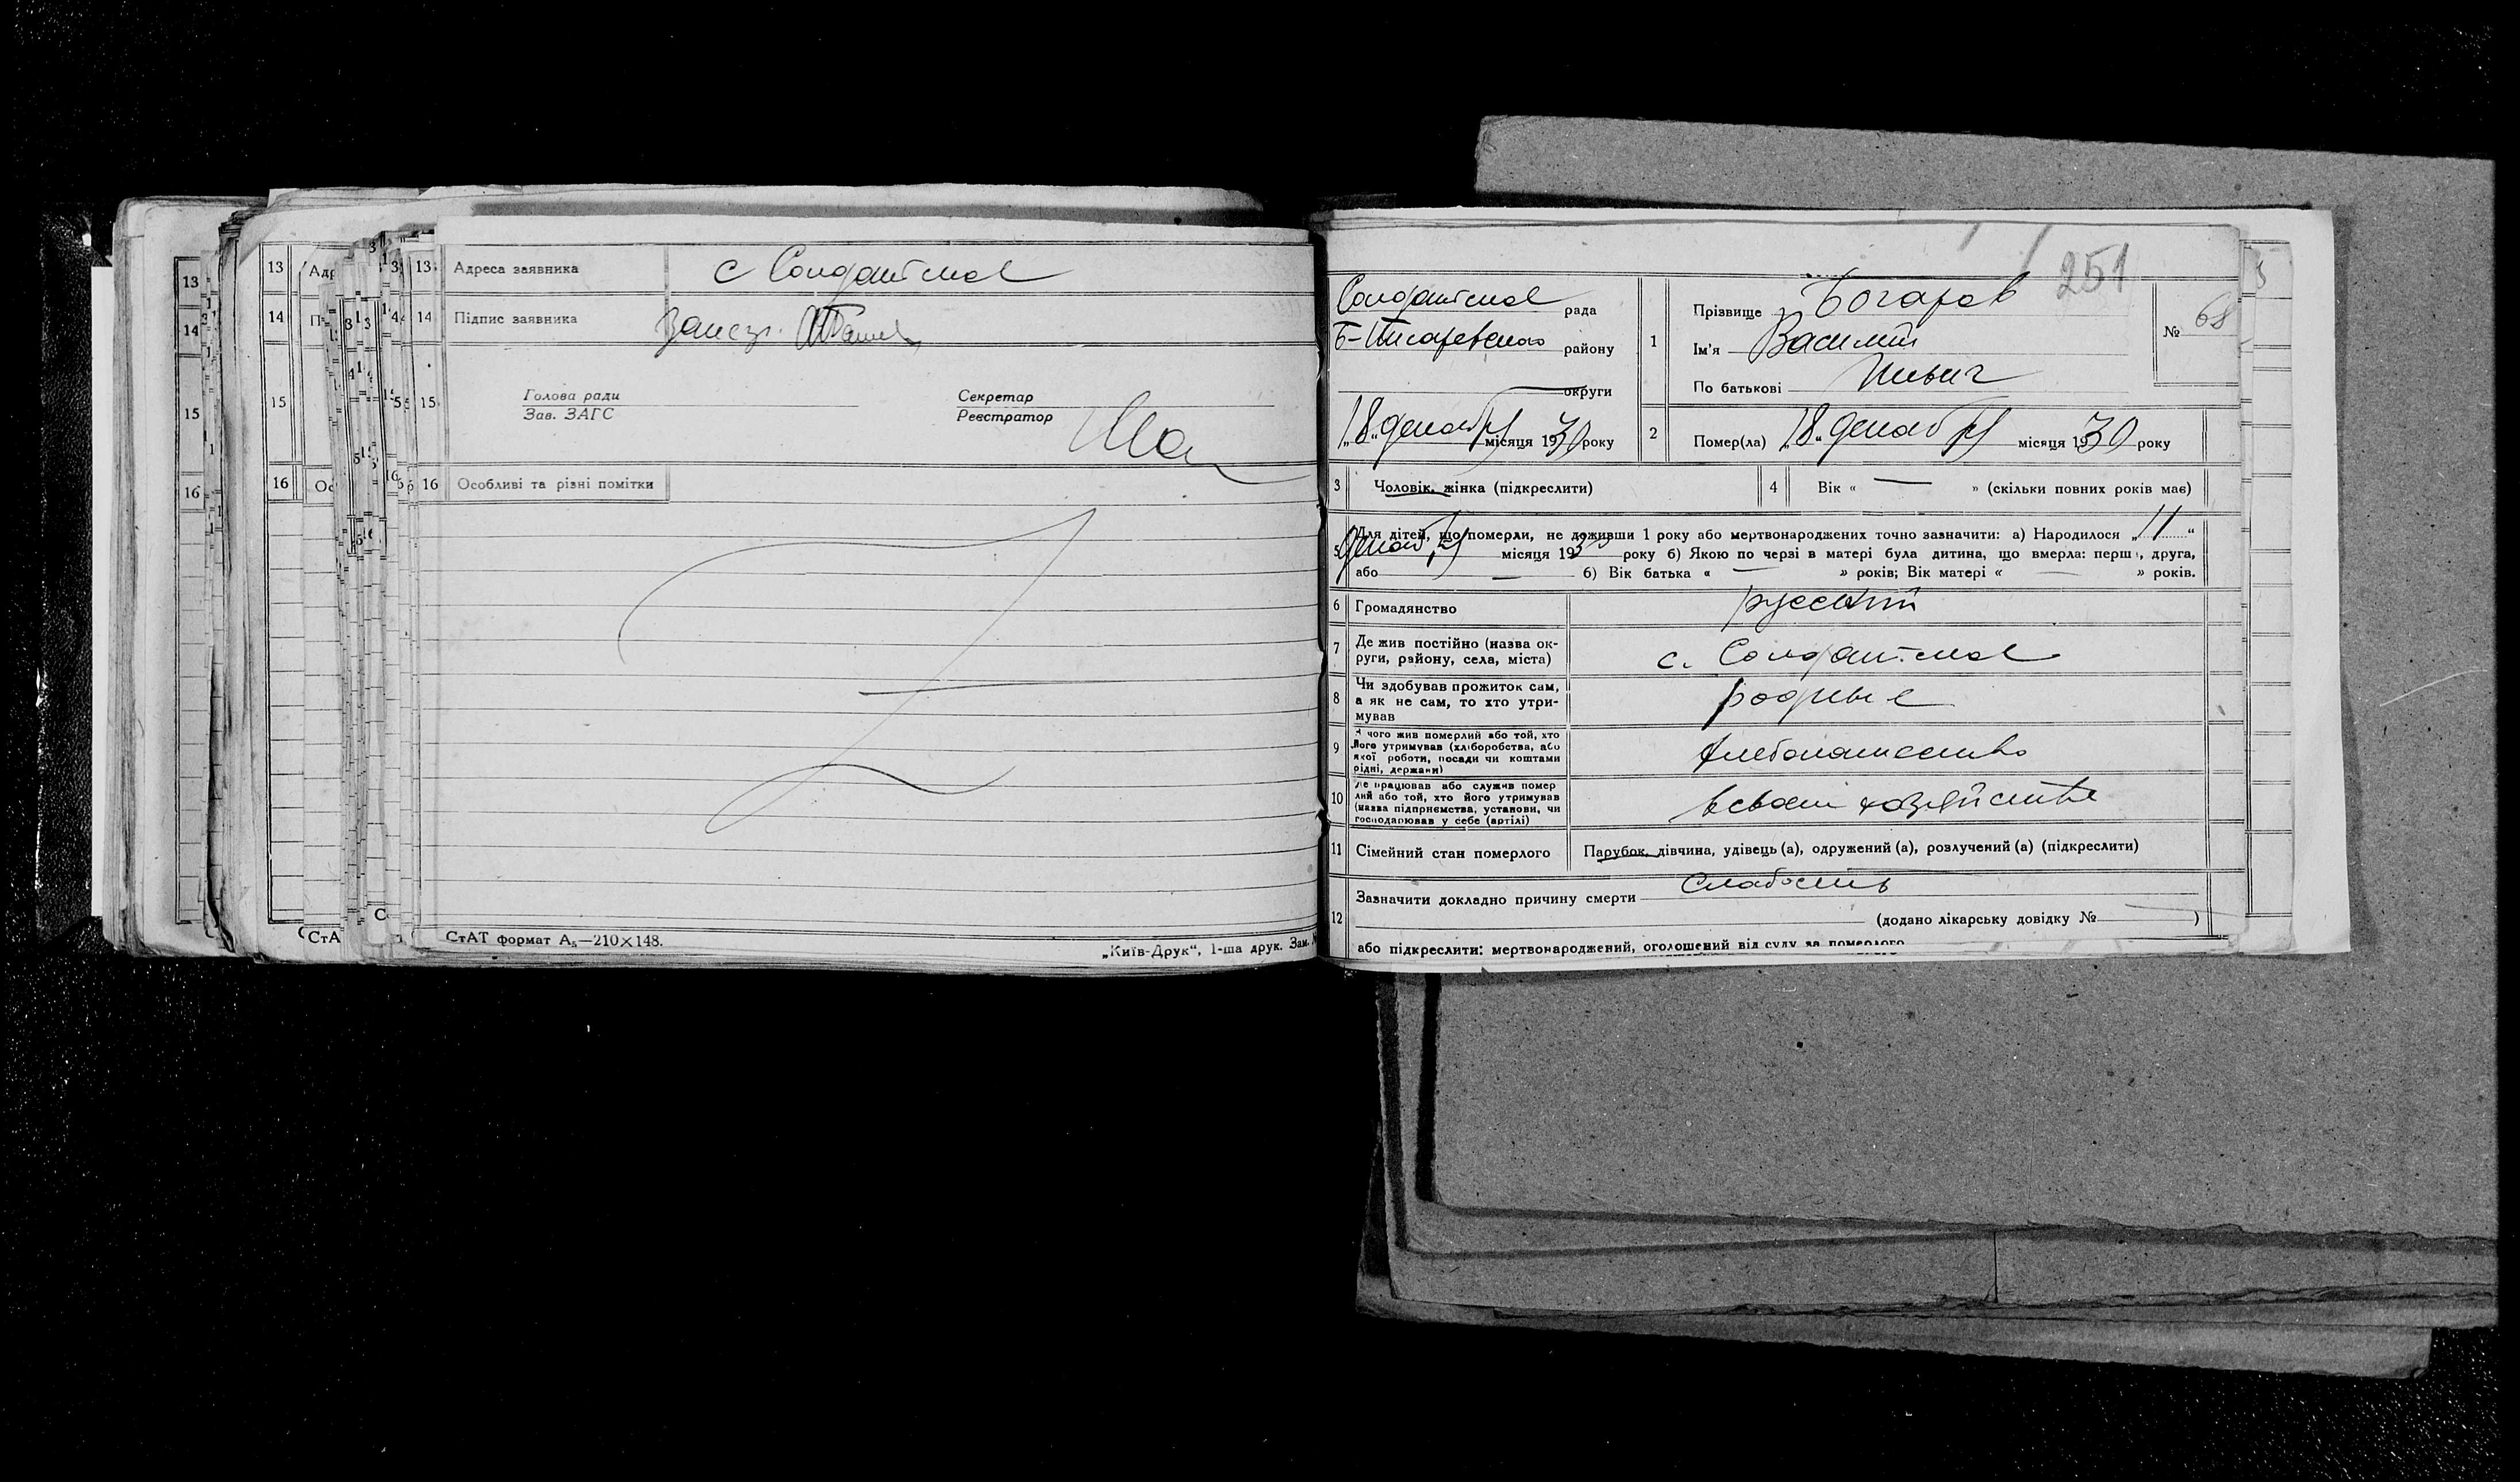 13 Адреса заявника с Солдатское
14 Підпис заявника
15 Голова ради Секретар
Зав. ЗАГС Реєстратор
16 Особливі та різні помітки
СтАТ формат А₅—210×148.
„Київ-Друк“, 1-ша друк. Зам.
251
Солдатское рада
Б-Писаревского району
округи
„18„ декабря місяця 1930 року
1 Прізвище Богаров
Ім'я Василий
По батькові Ильич
№ 68
2 Помер(ла) „18„ декабря місяця 1930 року
3 Чоловік, жінка (підкреслити)
4 Вік « — » (скільки повних років має)
5 Для дітей, що померли, не доживши 1 року або мертвонароджених точно зазначити: а) Народилося „11“
декабря місяця 1930 року б) Якою по черзі в матері була дитина, що вмерла: перша, друга,
або — б) Вік батька « — » років; Вік матері « — » років.
6 Громадянство русский
7 Де жив постійно (назва ок-
руги, району, села, міста) с. Солдатское
8 Чи здобував прожиток сам,
а як не сам, то хто утри-
мував родные
9 З чого жив померлий або той, хто
його утримував (хліборобства, або
якої роботи, посади чи коштами
рідні, держави) хлебопашество
10 Де працював або служив помер
лий або той, хто його утримував
(назва підприємства, установи, чи
господарював у себе (артілі) в своем хозяйстве
11 Сімейний стан померлого Парубок, дівчина, удівець (а), одружений (а), розлучений (а) (підкреслити)
12 Зазначити докладно причину смерти слабость
(додано лікарську довідку № )
або підкреслити: мертвонароджений, оголошений від суду за померлого